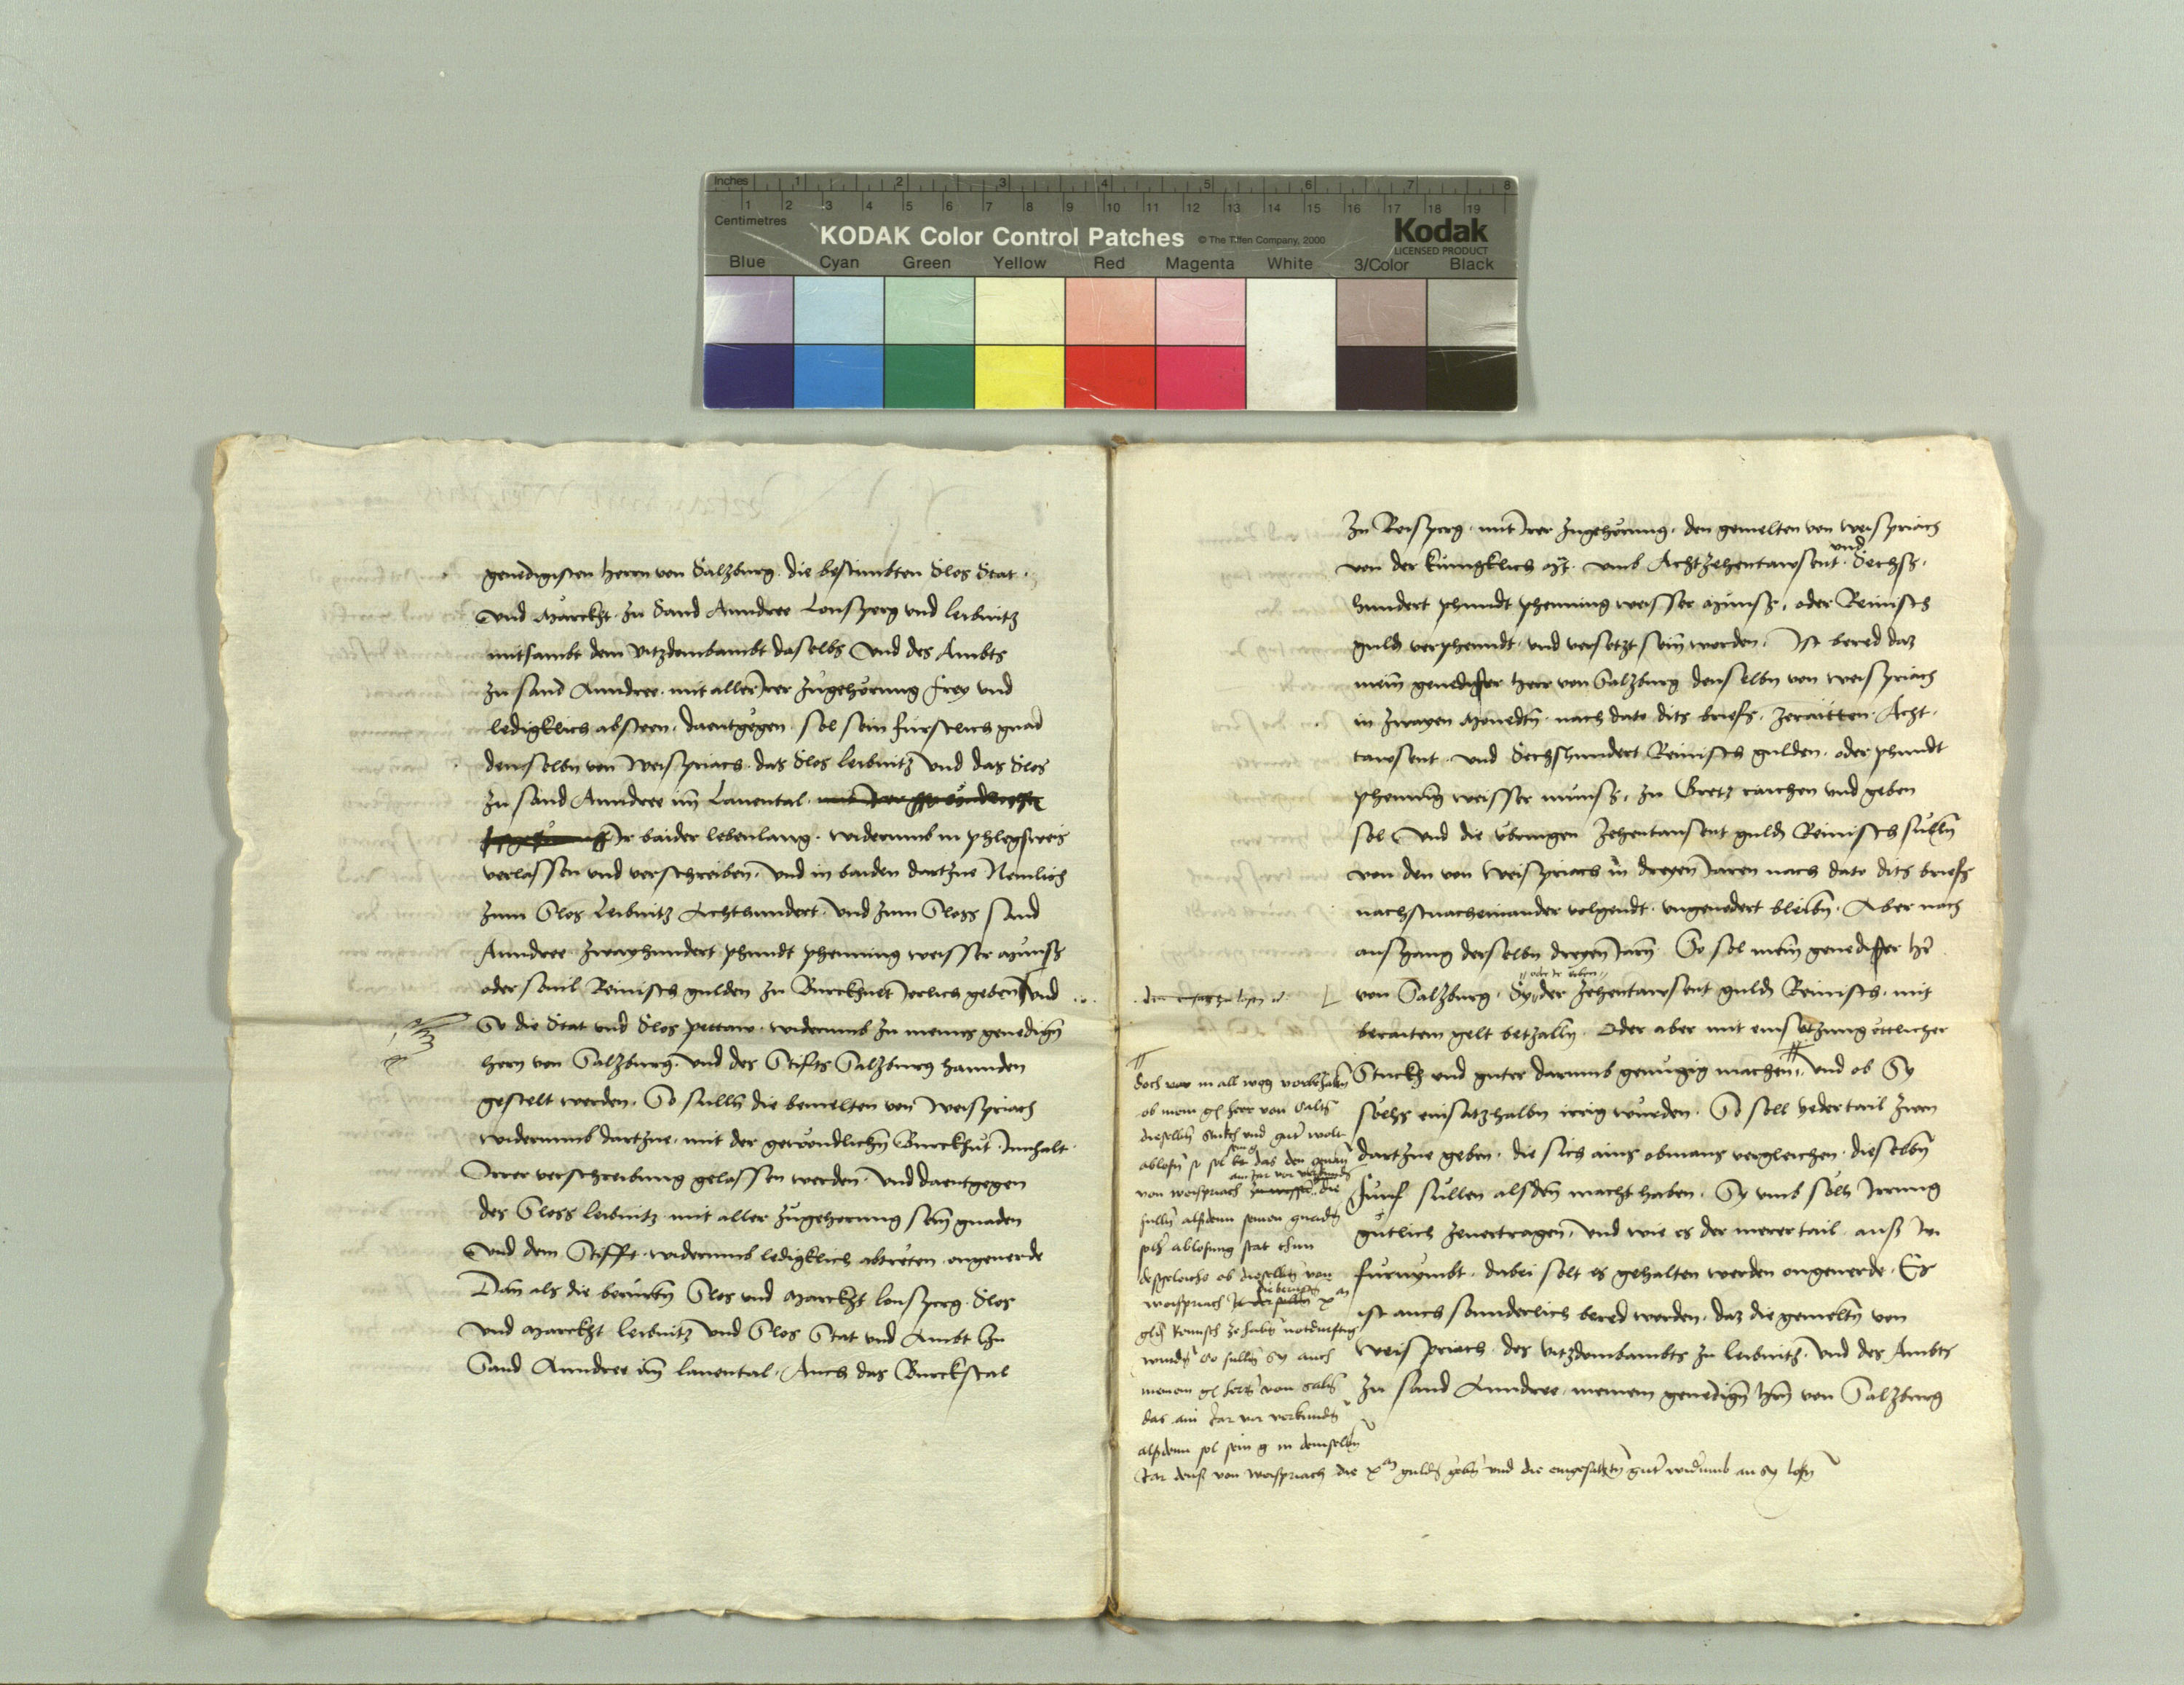 Inches 1 2 3 4 5 6 7 8
Centimetres 1 2 3 4 5 6 7 8 9 10 11 12 13 14 15 16 17 18 19
KODAK Color Control Patches © The Tiffen Company, 2000 Kodak
LICENSED PRODUCT
Blue Cyan Green Yellow Red Magenta White 3/Color Black
genedigisten herrn von Salzburg die bestimbten Slos Stat
und Märckht zu Sand Anndree Lonsperg und leibnitz
mitsambt dem vitzdombambt daselbs und des Ambts
zu sand Anndree mit aller Irer zugehörung frey und
ledigklich absteen, daentgegen sol sein fürstlich gnad
denselbn von Weispriach das Slos leibnitz und das Slos
zu sand Anndree im Lauental
Ir baider lebenlang widerumb in phlegsweis
verlassen und verschreiben, und in baiden dartzue Nemlich
zum Slos Leibnitz Achthundert und zum Sloss sand
Anndree zwayhundert phundt phenning weisser Münss
oder souil Reinisch gulden zu Burckhut Jerlich geben und
So die Stat und Slos pettaw widerumb zu meins genedign
hern von Salzburg und des Stifts Salzburg hannden
gestelt werden, So sulln die bemelten von Weispriach
widerumb dartzue mit der gewöndlichn Burckhut Innhalt
Irer verschreibung gelassen werden und daentgegen
des Sloss leibnitz mit aller zugehorung sein gnaden
und dem Stifft widerumb ledigklich abtreten ongeuerde
Dan als die berürtn Slos und Marckht lonsperg Slos
und Marckht leibnitz und Slos Stat und Ambt zu
Sand Anndree im lauental, Auch das Burckstal
zu Reisperg mit Irer zugehörung, den gemelten von weispriach
und
von der künigklich Mt. umb Achtzehentawsent Sechs
hundert phundt phenning weisser Münss, oder Reinisch
guldn verphenndt und versetzt sein worden, Ist bered daz
mein genedister herr von Salzburg denselbn von weispriach
in zwayen Monedtn nach dato dits briefs, Acht
tawsent und Sechshundert Reinisch gulden oder phundt
phenning weisser münss, zu Gretz raichen und geben
sol und die übrigen zehentausent guldn Reinisch sulln
von den von Weispriach in dreyen Jaren nach dato dits briefs
nachstnacheinander volgendt ungeuodert bleibn. Aber nach
ausgang derselbn dreyen Jarn So sol mein genedister hr
oder ir erben
von Salzburg, Sy der zehentawsent guldn Reinisch, mit
beraitem gelt betzalln, Oder aber mit einsetzung ettlicher
Stuckh und guter darumb genügig machen, und ob Sy
sölhs einsatzhalbn irrig wurden, So soll yeder tail zwen
dartzue geben, die sich ains obmans vergleichen, dieselbn
fünf süllen alsden macht haben, Sy umb solh Irrung
gütlich zuuertragen, und wie es der merer tail auss In
furnymbt, dabei solt es gehalten werden ongeuerde. Es
ist auch sonnderlich bered worden, daz die gemeltn von
Weispriach des vitzdombambts zu leibnitz und des Ambts
zu sand Anndree meinem genedign hrn von Salzburg
doch in all weg vorbehaltn
ob mein gl herr von Saltz
dieselbn stukch und guter wolt
ablosn so sol das den
von weispriach die
sulln alsdenn seinen gnadn
solh ablosung stat thun
desgeleichs ob dieselbn von
weispriach xm
gldn Reinisch ze habn notdurftig
wurdn So sulln sy auch
meinem gl herrn von Saltz
das ain Jar vor verkundn
alsdenn sol sein g in demselbn
Jar denss von weispriach die xm guldn gebn und die eingesatztn guter widerumb an sy losn